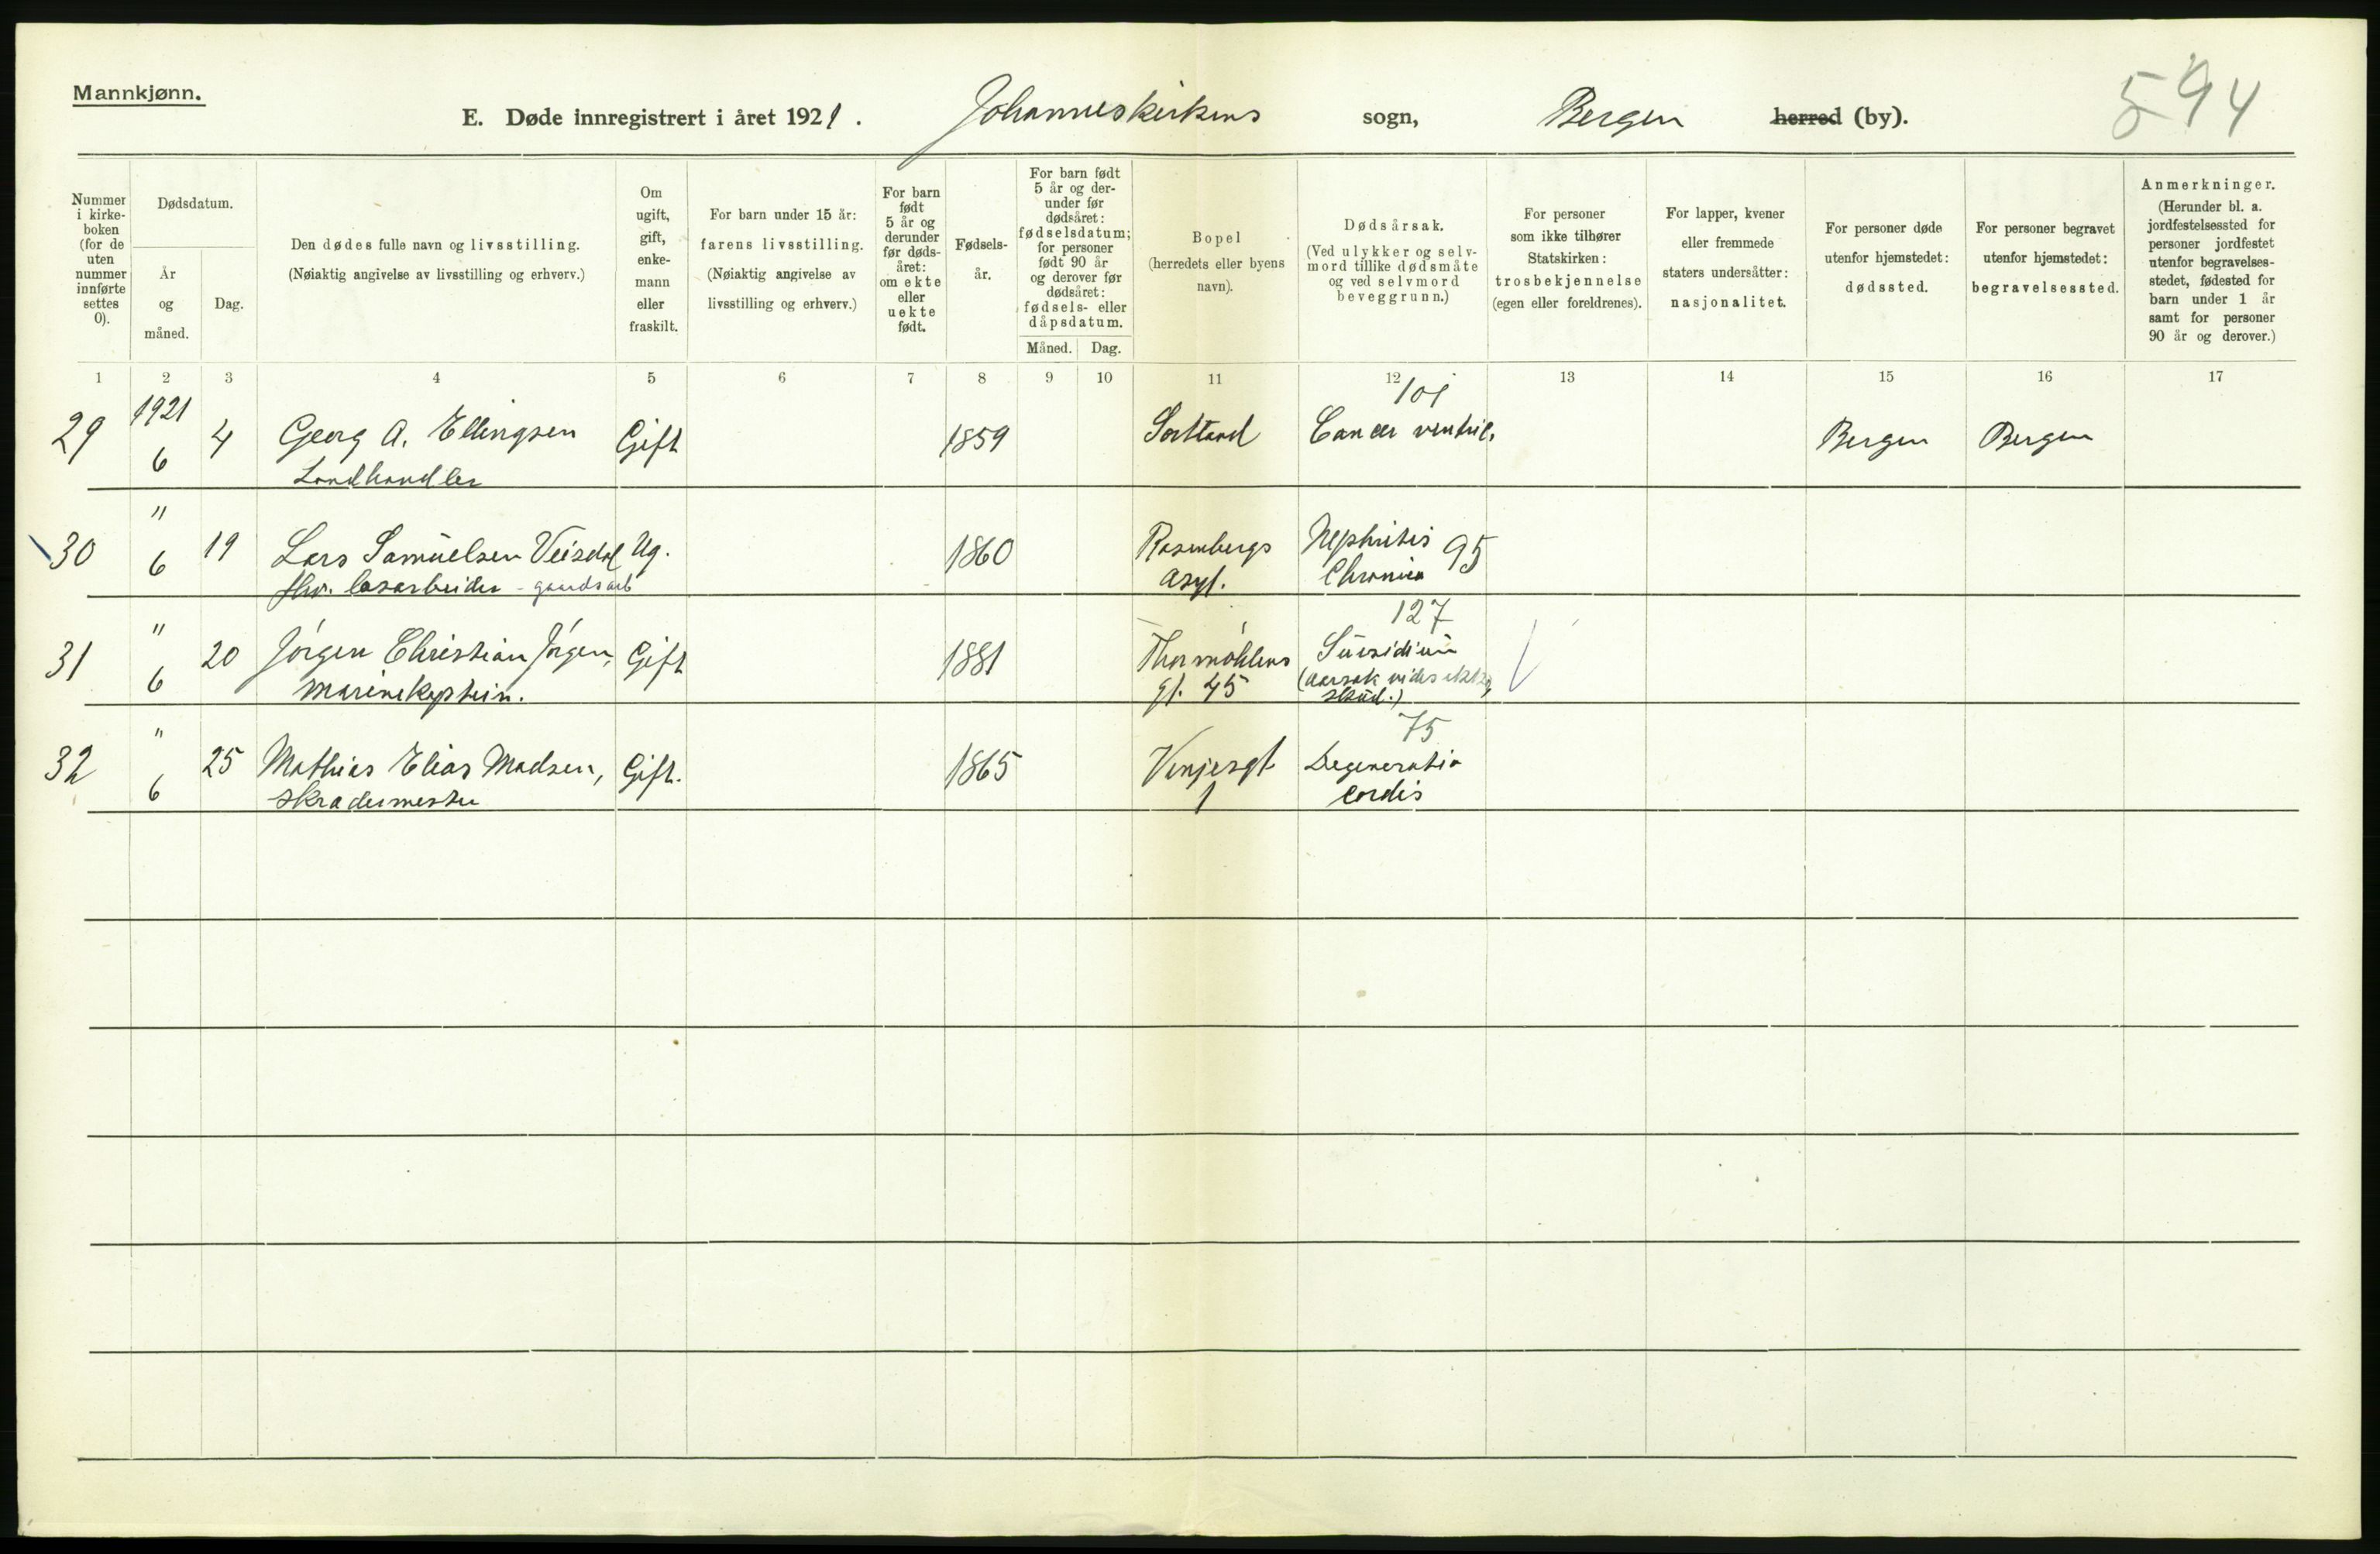 Mannkjønn.
594
E. Døde innregistrert i året 1921. Johanneskirkens sogn, Bergen herred (by).
Nummer i kirke- boken (for de uten nummer innførte settes 0).
Dødsdatum.
År og måned.
Dag.
Den dødes fulle navn og livsstilling.
(Nøiaktig angivelse av livsstilling og erhverv.)
Om ugift, gift, enke- mann eller fraskilt.
For barn under 15 år: farens livsstilling.
(Nøiaktig angivelse av livsstilling og erhverv.)
For barn født 5 år og derunder før døds- året: om ekte eller uekte født.
Fødsels- år.
For barn født 5 år og der- under før dødsåret: fødselsdatum; for personer født 90 år og derover før dødsåret: fødsels- eller dåpsdatum.
Måned. Dag.
Bopel
(herredets eller byens navn).
Dødsårsak.
(Ved ulykker og selv- mord tillike dødsmåte og ved selvmord beveggrunn.)
For personer som ikke tilhører Statskirken: trosbekjennelse (egen eller foreldrenes).
For lapper, kvener eller fremmede staters undersåtter: nasjonalitet.
For personer døde utenfor hjemstedet: dødssted.
For personer begravet utenfor hjemstedet: begravelsessted.
Anmerkninger.
(Herunder bl. a. jordfestelsessted for personer jordfestet utenfor begravelses- stedet, fødested for barn under 1 år samt for personer 90 år og derover.)
1 2 3 4 5 6 7 8 9 10 11 12 13 14 15 16 17
101
29 1921 6 4 Georg A. Ellingsen Gift 1859 Sortland Cancer ventric. Bergen Bergen
Landhandler
30 " 6 19 Lars Samuelsen Veisdal Ug. 1860 Rosenbergs Nephritis 95
fhv. løsarbeider - gaardsarb asyl. Chronica
127
31 " 6 20 Jørgen Christian Jørgen, Gift 1881 Thormøhlens Suicidium
marinekaptein. gt. 45
75
32 " 6 25 Mathias Elias Madsen, Gift. 1865 Vinjesgt Degeneratio
skradermester 1 cordis